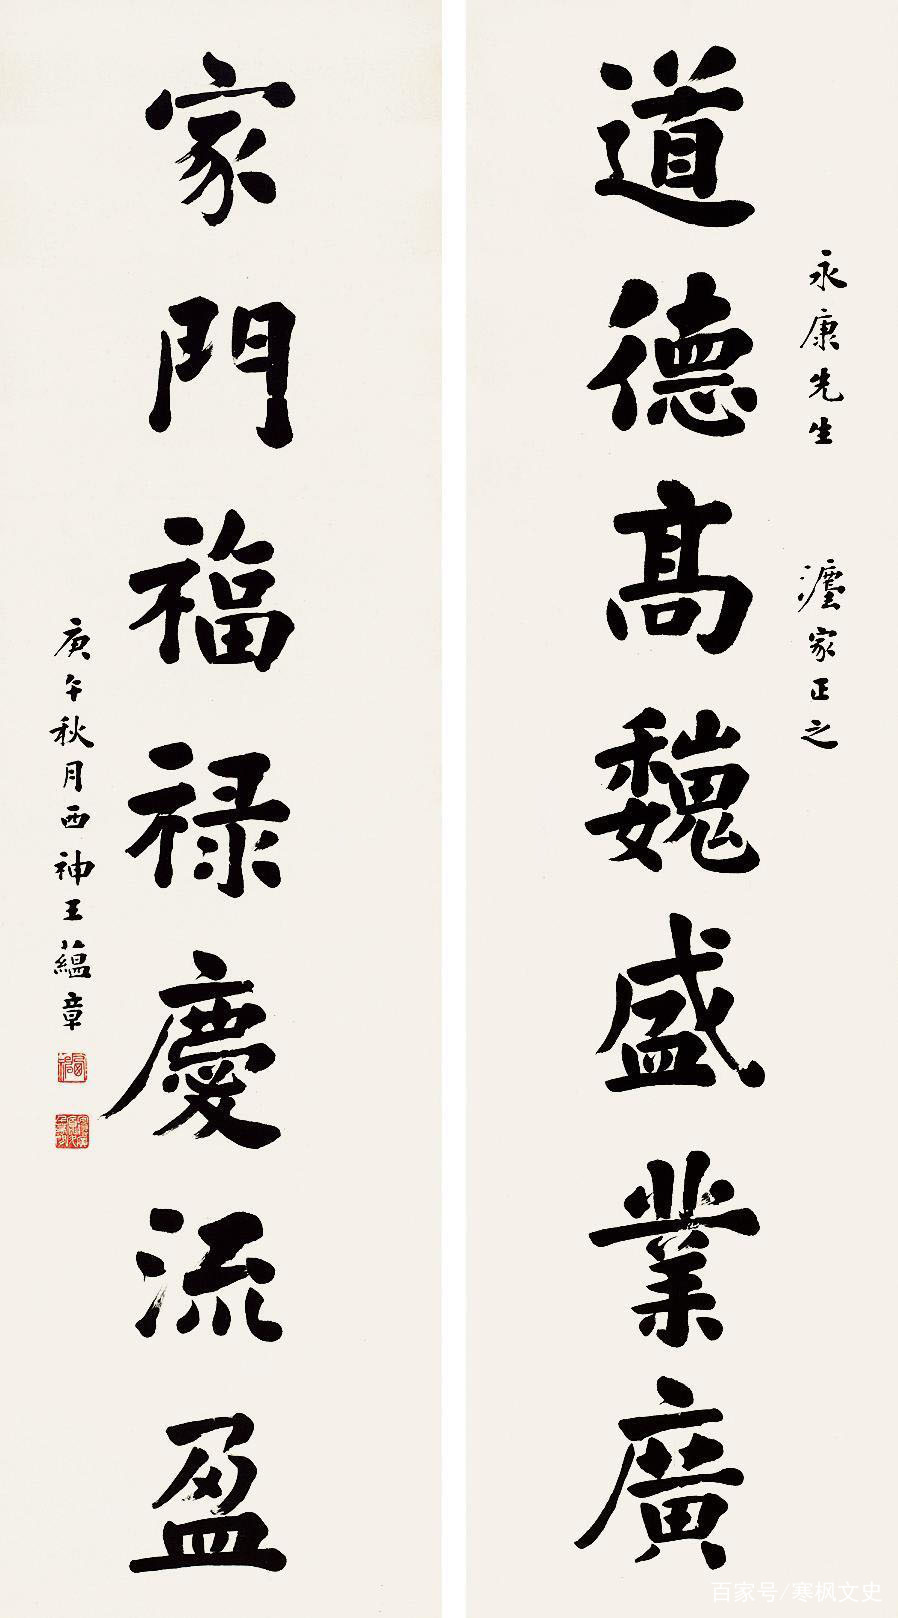 永康先生 灋家正之
道德高巍盛業廣
家門福禄慶流盈
庚午秋月西神王蘊章
百家号/寒枫文史